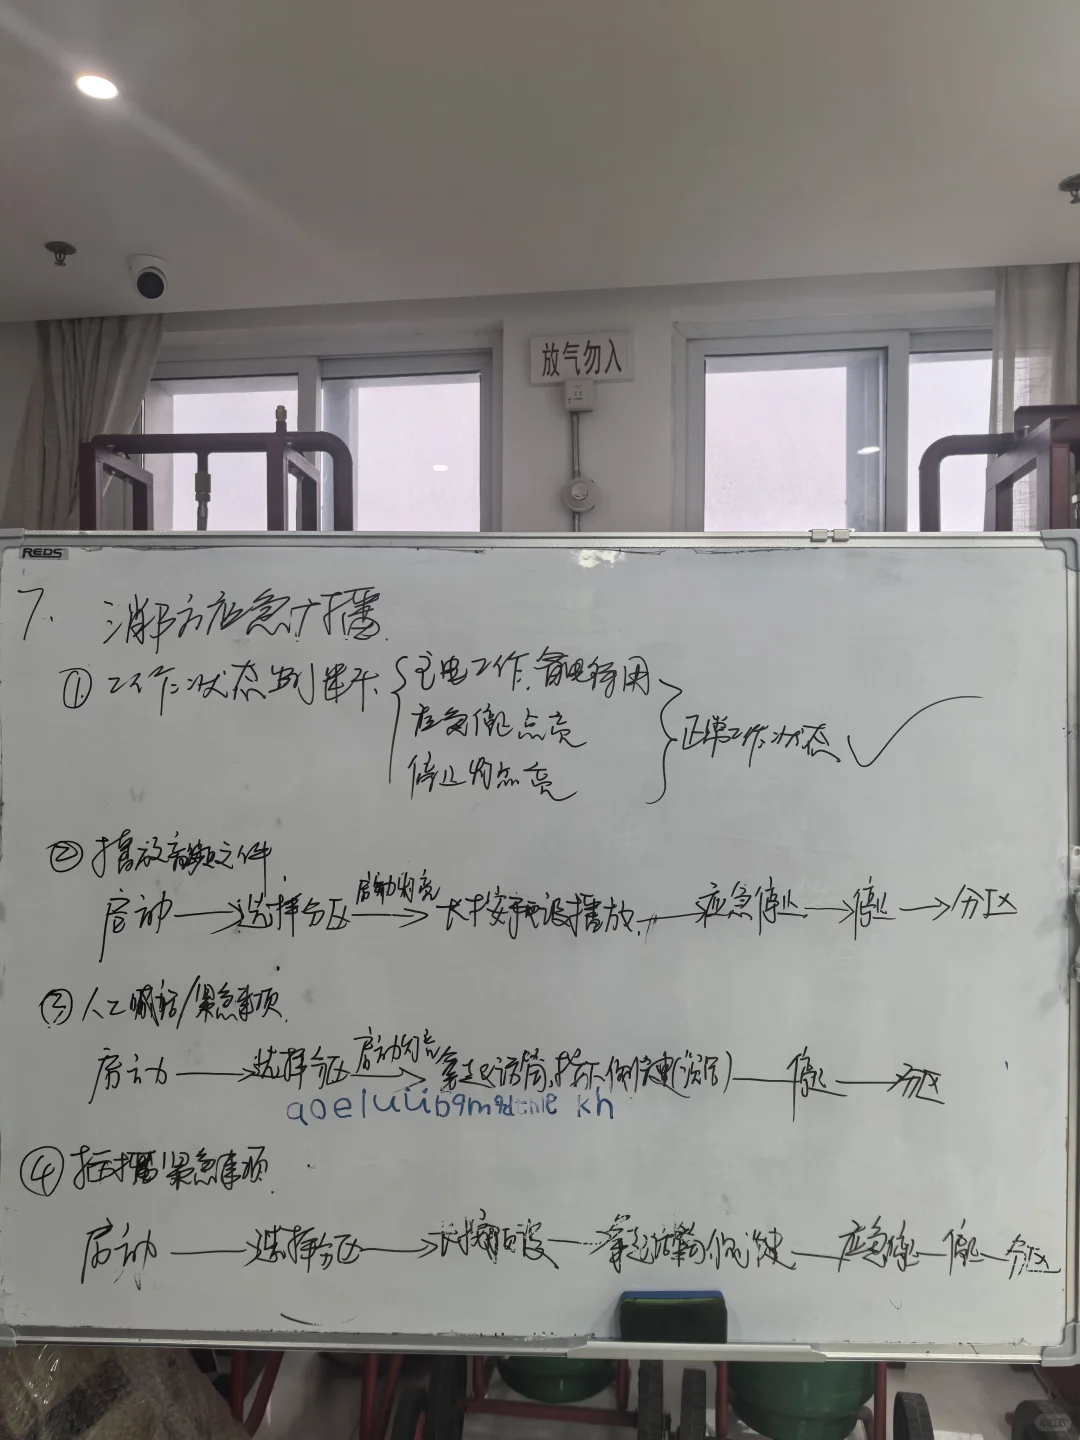 放气勿入
REDS
7. 消防应急广播
① 工作状态判断
主电工作,备电待用
应急停止点亮
停止灯点亮
正常工作状态
② 播放音频文件
启动 选择分区 启动灯亮 长按预设播放 应急停止 停止 分区
③ 人工喊话/紧急事项
启动 选择分区 启动灯亮 拿起话筒,按下侧键(演唱) 停止 分区
aoeiuüb9m kh
④ 插播紧急事项
启动 选择分区 长按预设 拿起话筒 应急停止 停止 分区